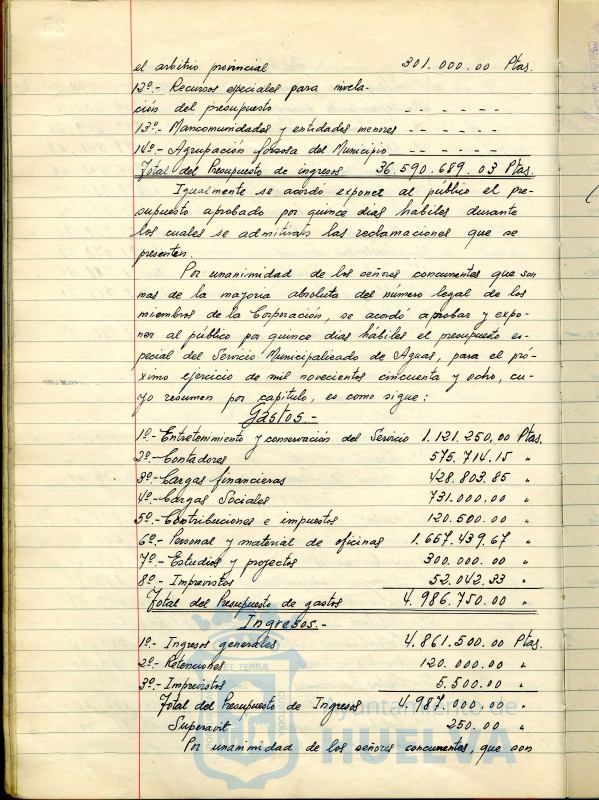 el arbitrio provincial 301.000,00 Ptas.
12º.- Recursos especiales para nivela-
ción del presupuesto - - - - - -
13º.- Mancomunidades y entidades menores - - - - - -
14º.- Agrupación forzosa del Municipio - - - - - -
Total del Presupuesto de ingresos 36.590.689.03 Ptas.
Igualmente se acordó exponer al público el pre-
supuesto aprobado por quince dias habiles durante
los cuales se admitirán las reclamaciones que se
presenten.
Por unanimidad de los señores concurrentes que son
mas de la mayoria absoluta del número legal de los
miembros de la Corporación, se acordó aprobar y expo-
ner al público por quince dias hábiles el presupuesto es-
pecial del Servicio Municipalicado de Aguas, para el pró-
ximo ejercicio de mil novecientos cincuenta y ocho, cu-
yo resumen por capitulo, es como sigue:
Gastos.-
1º.- Entretenimiento y conservación del Servicio 1.121.250,00 Ptas.
2º.- Contadores 575.714.15 "
3º.- Cargas financieras 428.803.85 "
4º.- Cargas Sociales 731.000,00 "
5º.- Contribuciones e impuestos 120.500.00 "
6º.- Personal y material de oficinas 1.657.439.67 "
7º.- Estudios y projectos 300.000.00 "
8º.- Imprevistos 52.042.33 "
Total del Presupuesto de gastos 4.986.750.00 "
Ingresos.-
1º.- Ingresos generales 4.861.500.00 Ptas.
2º.- Retenciones 120.000.00 "
3º.- Imprevistos 5.500.00 "
Total del Presupuesto de Ingresos 4.987.000,00 "
Superavit 250.00 "
Por unanimidad de los señores concurrentes, que son
Ayuntamiento de
HUELVA